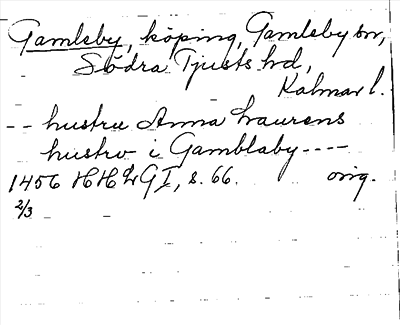 Gamleby, köping, Gamleby sn,
Södra Tjusts hd,
Kalmar l.
-- hustru Anna Laurens
hustro i Gamblaby ----
1456 HHLG I, s. 66. orig.
2/3